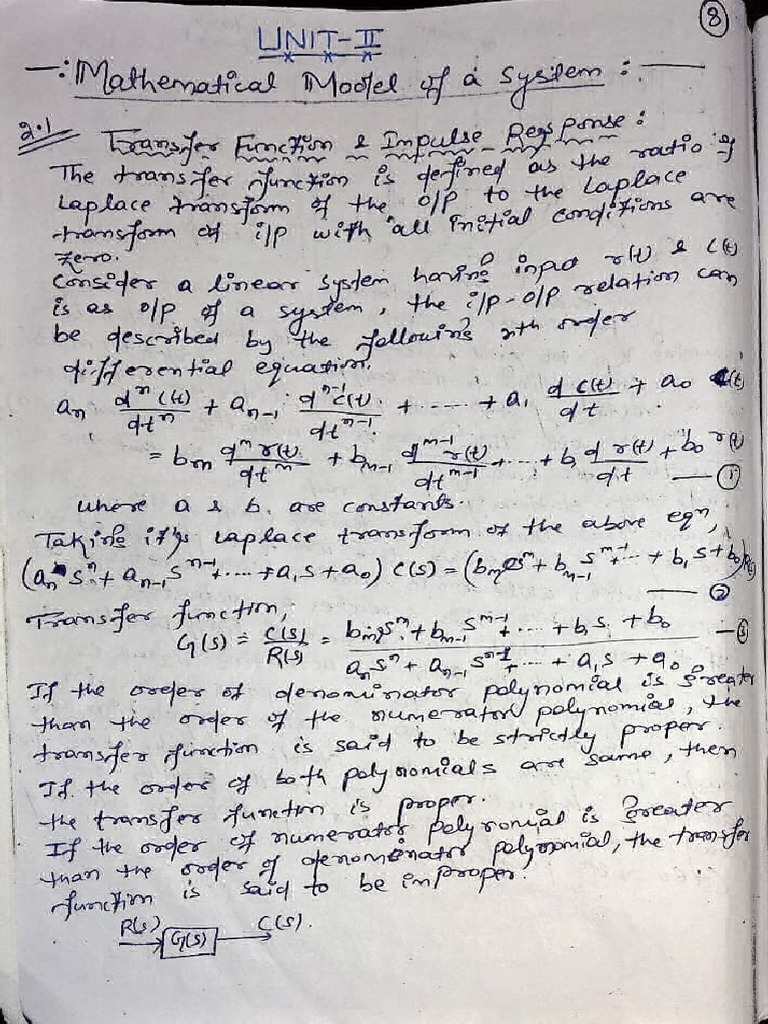 8
UNIT-II
-: Mathematical Model of a System : -
2.1 Transfer Function & Impulse Response :
The transfer function is defined as the ratio of
Laplace transform of the o/p to the Laplace
transform of i/p with all initial conditions are
zero.
Consider a linear system having input r(t) & c(t)
is as o/p of a system, the i/p-o/p relation can
be described by the following nth order
differential equation.
aₙ dⁿc(t)/dtⁿ + aₙ₋₁ dⁿ⁻¹c(t)/dtⁿ⁻¹ + ...... + a₁ dc(t)/dt + a₀ c(t)
= bₘ dᵐr(t)/dtᵐ + bₘ₋₁ dᵐ⁻¹r(t)/dtᵐ⁻¹ + ... + b₁ dr(t)/dt + b₀ r(t) — ①
where a & b. are constants.
Taking it's Laplace transform of the above eqⁿ,
(aₙsⁿ + aₙ₋₁sⁿ⁻¹ + .... + a₁s + a₀) C(s) = (bₘsᵐ + bₘ₋₁sᵐ⁻¹ + ... + b₁s + b₀)R(s)
— ②
Transfer function,
G(s) = C(s)/R(s) = (bₘsᵐ + bₘ₋₁sᵐ⁻¹ + .... + b₁s + b₀)/(aₙsⁿ + aₙ₋₁sⁿ⁻¹ + ... + a₁s + a₀) — ③
If the order of denominator polynomial is greater
than the order of the numerator polynomial, the
transfer function is said to be strictly proper.
If the order of both polynomials are same, then
the transfer function is proper.
If the order of numerator polynomial is greater
than the order of denominator polynomial, the transfer
function is said to be improper.
R(s) G(s) C(s).